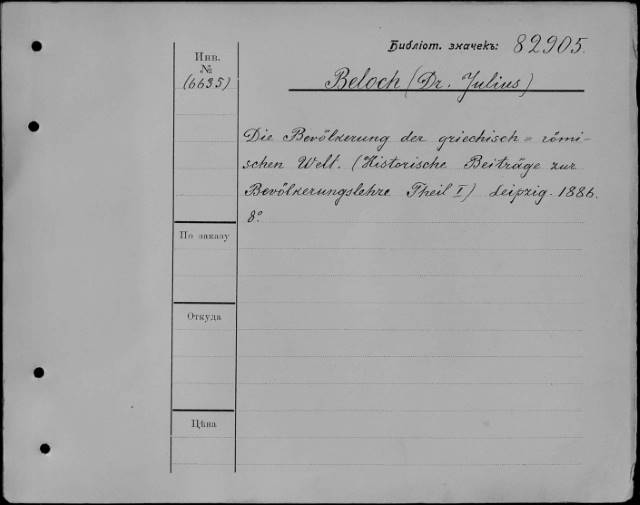 Библіот. значекъ: 82905.
Инв.
№
(6635)
Beloch (Dr. Julius)
Die Bevölkerung der griechisch = römi-
schen Welt. (Historische Beiträge zur
Bevölkerungslehre Theil I) Leipzig. 1886.
8º.
По заказу
Откуда
Цѣна